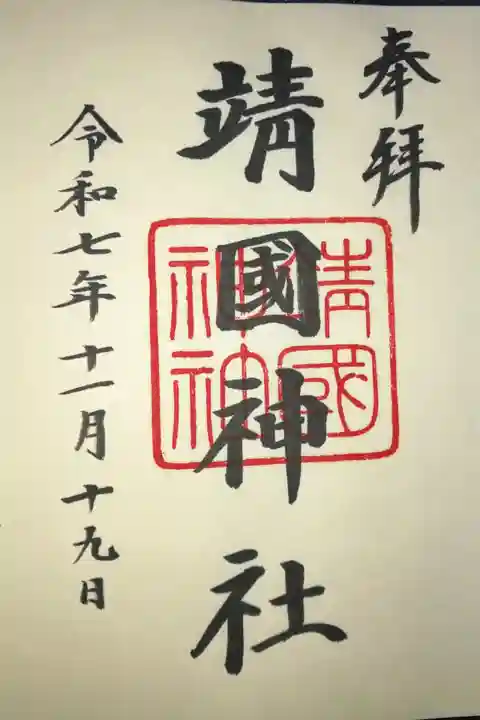 奉拜
靖國神社
令和七年十一月十九日
靖國
神社